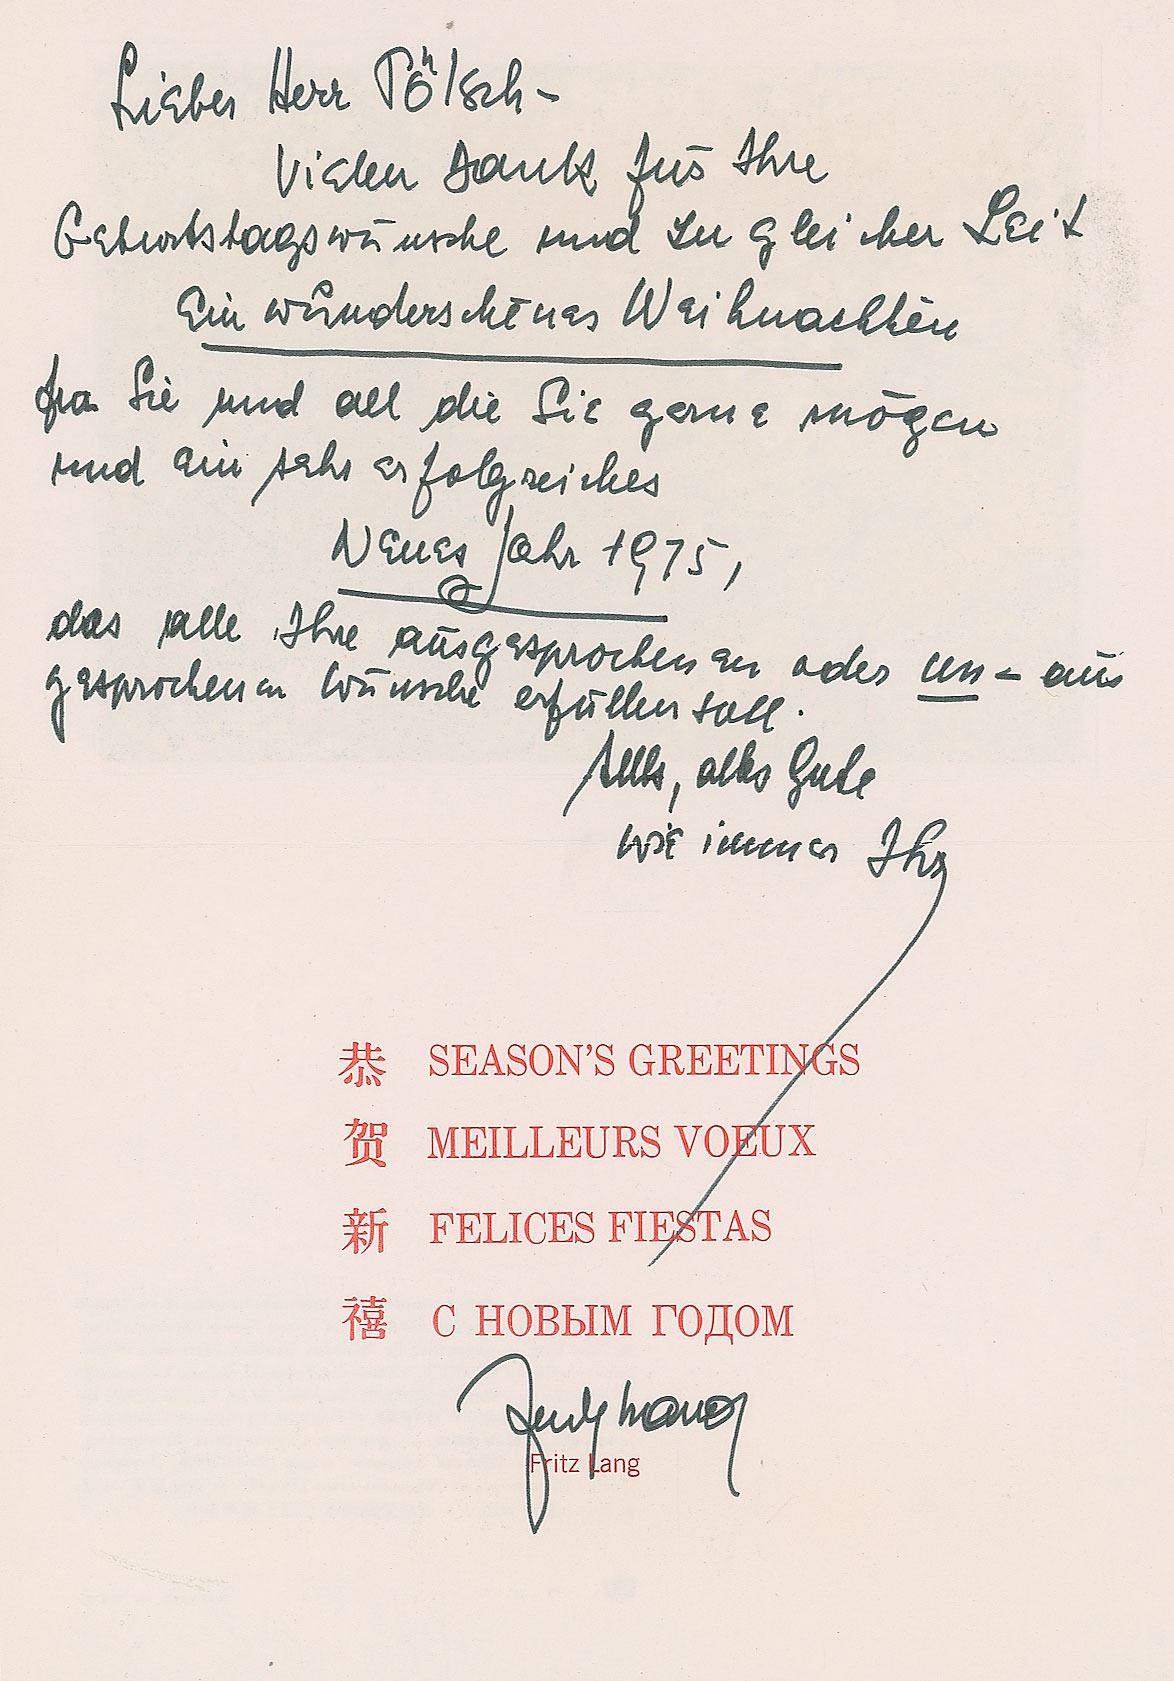 Lieber Herr Pölsch –
Vielen Dank für Ihre
Geburtstagswünsche und zu gleicher Zeit
Ein wunderschönes Weihnachten
für Sie und all die Sie gerne mögen
und ein sehr erfolgreiches
Neues Jahr 1975,
das alle Ihre ausgesprochenen oder un- aus
gesprochenen Wünsche erfüllen soll.
Alles, alles Gute
wie immer Ihr
恭 SEASON'S GREETINGS
贺 MEILLEURS VOEUX
新 FELICES FIESTAS
禧 С НОВЫМ ГОДОМ
Fritz Lang
Fritz Lang